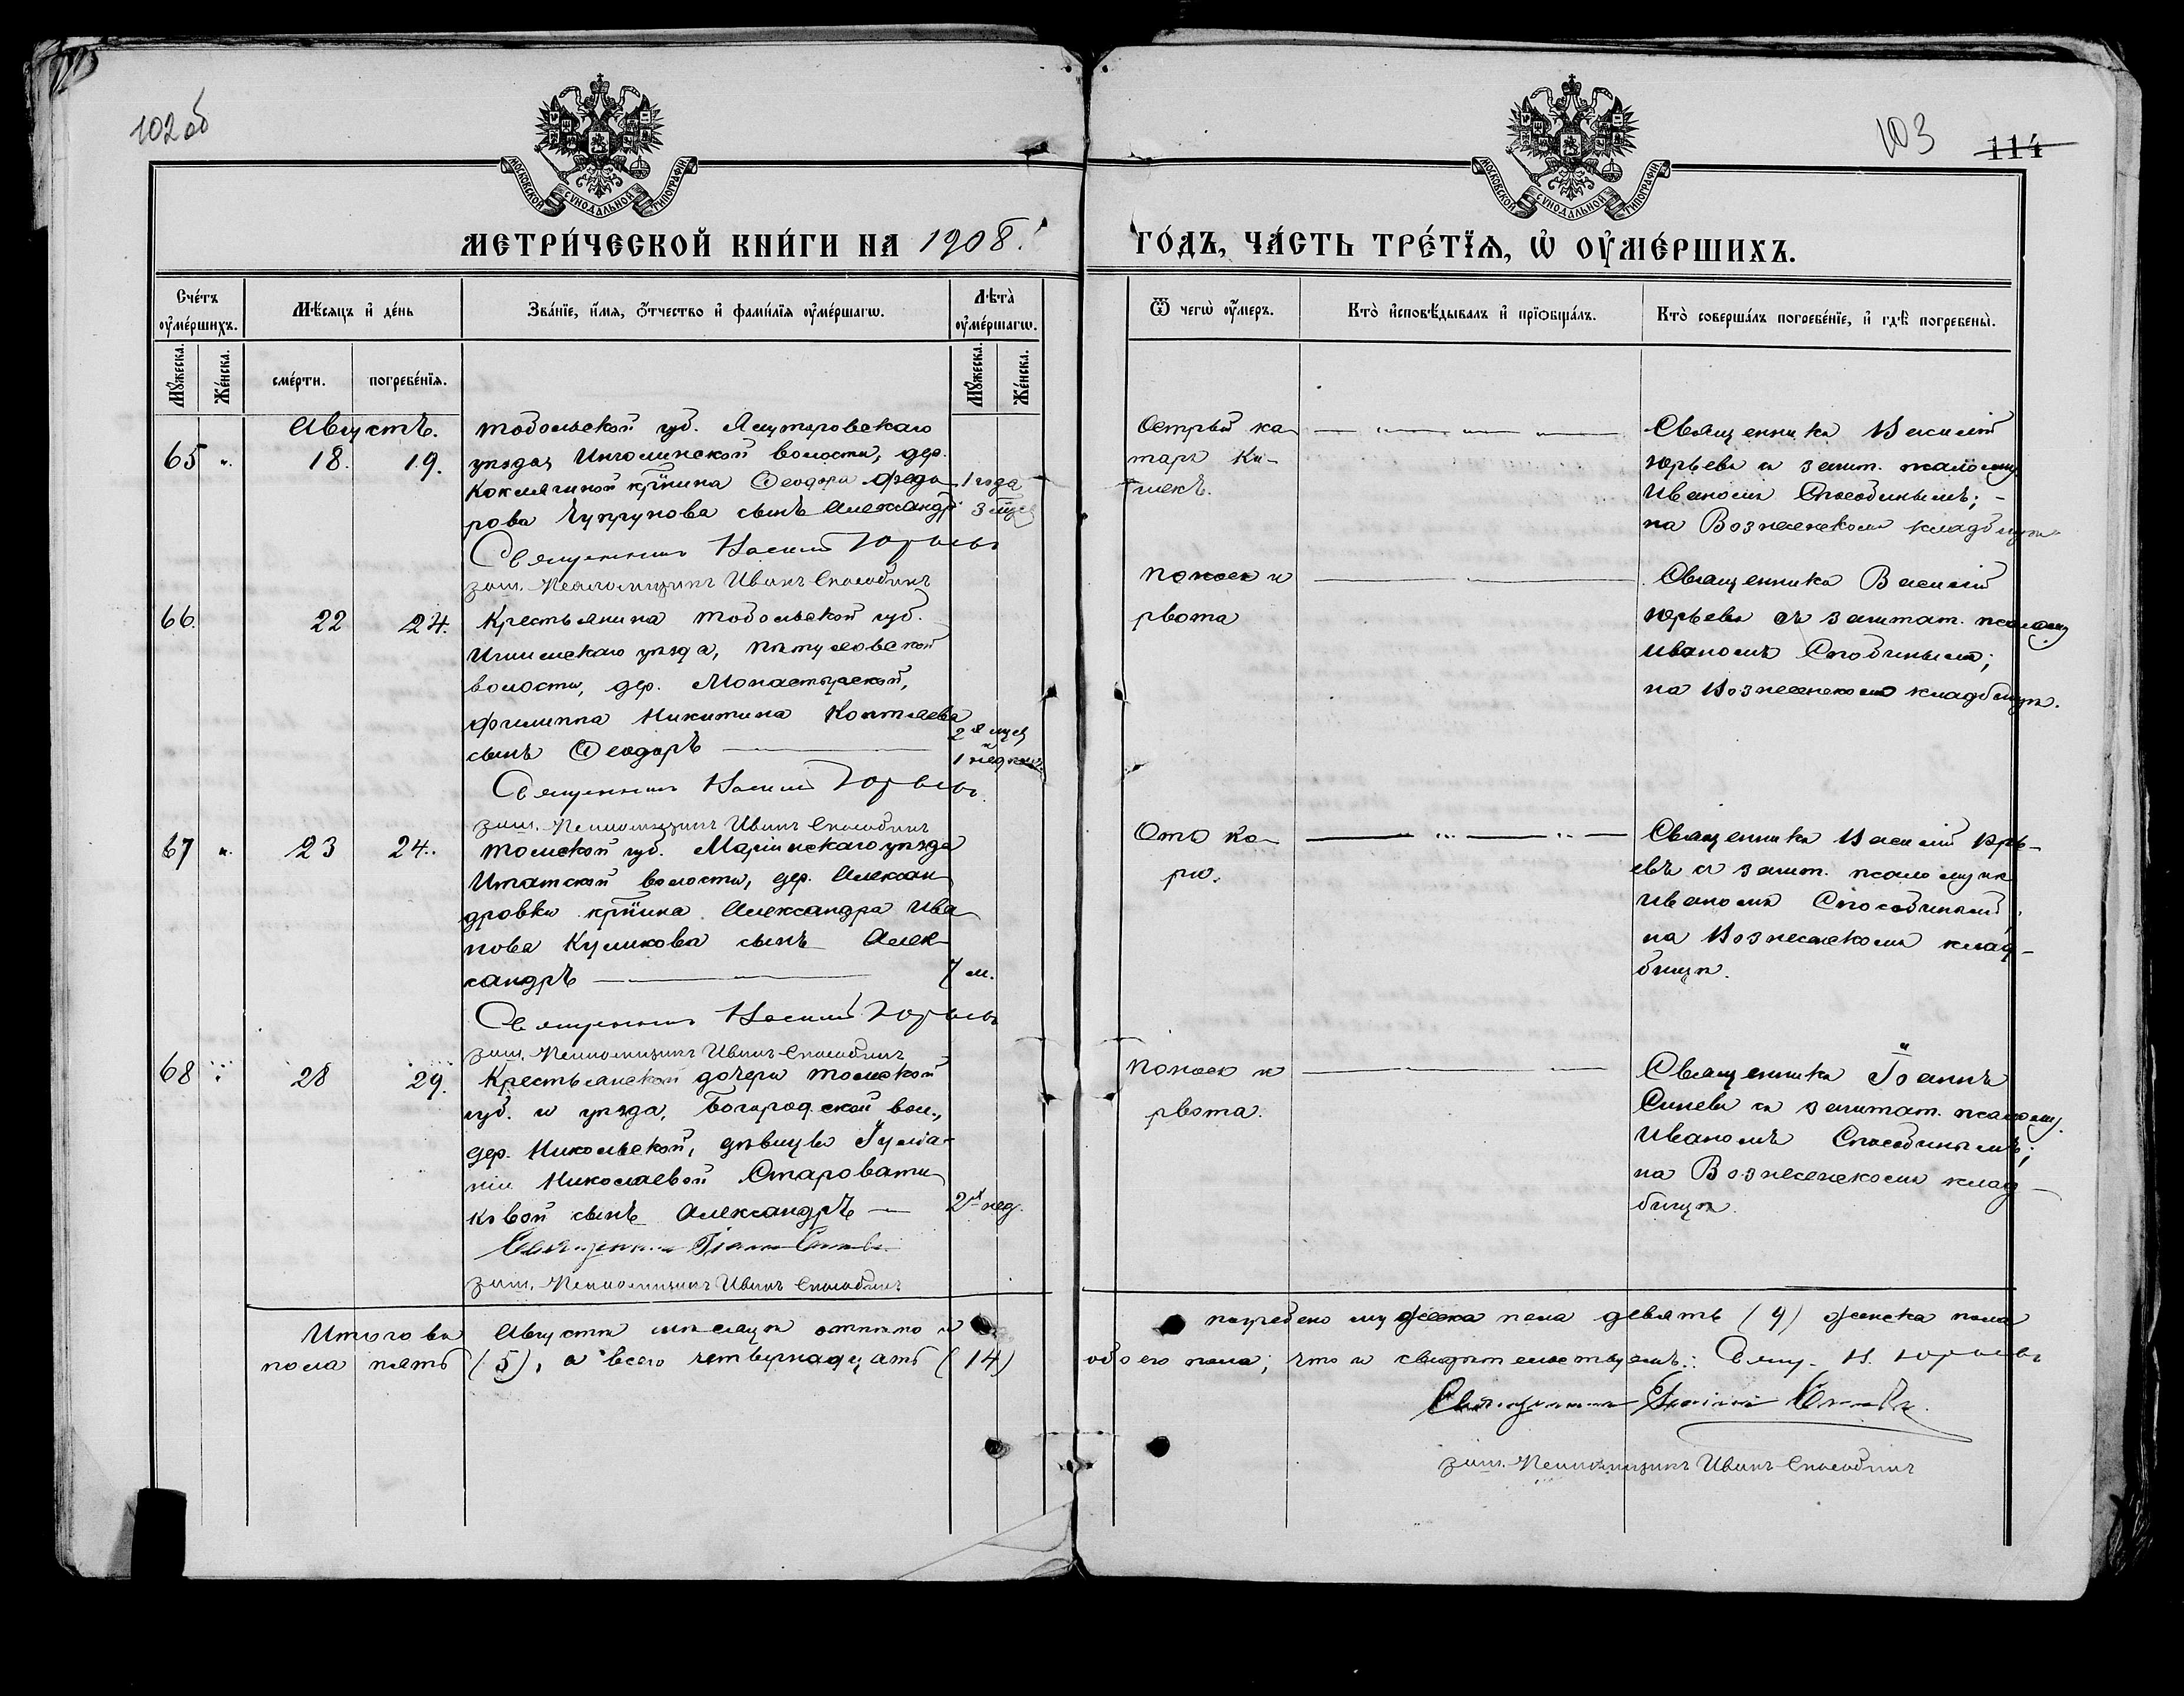 102 об
103 114
МОСКОВСКОЙ СѴНОДАЛЬНОЙ ТИПОГРАФІИ
МОСКОВСКОЙ СѴНОДАЛЬНОЙ ТИПОГРАФІИ
МЕТРИ́ЧЕСКОЙ КНИ́ГИ НА 1908.
ГО́ДЪ, ЧА́СТЬ ТРЕ́ТЇѦ, Ѡ҆ ОУ҆МЕ́РШИХЪ.
Сче́тъ оу҆ме́ршихъ.
Мѣ́сяцъ и҆ де́нь
Зва́нїе, и҆́мя, ѻ҆́тчество и҆ фами́лїя оу҆ме́ршагѡ.
Лѣта̀ оу҆ме́ршагѡ.
Мꙋ́жеска.
Же́нска.
сме́рти.
погребе́нїя.
Мꙋ́жеска.
Же́нска.
Ѿ чегѡ̀ оу҆́меръ.
Кто̀ и҆сповѣ́дывалъ и҆ прїѡбща́лъ.
Кто̀ соверша́лъ погребе́нїе, и҆ гдѣ̀ погребены̀.
Августъ.
65 " 18. 19.
Тобольской губ. Ялуторовскаго
уѣзда, Ингалинской волости, дер.
Коклягиной кр̃ина Ѳеодора Федо-
рова Чупрунова сынъ Александръ
1 года
3 мѣс
Священникъ Василій Юрьевъ
заш. Псаломщикъ Иванъ Способинъ
Острый ка-
таръ Ки-
шекъ.
Священникъ Василій
Юрьевъ съ зашт. псаломщ
Иваномъ Способинымъ; -
на Вознесенскомъ кладбищѣ
66. 22 24.
Крестьянина Тобольской губ.
Ишимскаго уѣзда,
волости, дер. Монастырской,
Филиппа Никитина Коптяева
сынъ Ѳеодоръ
2 мѣс
1 нед
Священникъ Василій Юрьевъ
заш. Псаломщикъ Иванъ Способинъ
Поносъ и
рвота
Священникъ Василій
Юрьевъ съ заштат. псаломщ
Иваномъ Спобинымъ;
на Вознесенскомъ кладбищѣ.
67 " 23 24.
Томской губ. Маріинскаго уѣзда
Итатской волости, дер. Алексан-
дровки кр̃ина Александра Ива-
нова Куликова сынъ Алек-
сандръ
7 м.
Священникъ Василій Юрьевъ
заш. Псаломщикъ Иванъ Способинъ
Отъ ко-
ри.
Священникъ Василій Юрь-
евъ съ зашт. псаломщик
Иваномъ Способинымъ
на Вознесенскомъ клад-
бищѣ.
68 28 29.
Крестьянской дочери Томской
губ. и уѣзда, Богородской вол.,
дер. Никольской, дѣвицы Іулiа-
нiи Николаевой Старовати-
ковой сынъ Александръ
2 нед.
Священникъ Іоаннъ Синевъ
заш. Псаломщикъ Иванъ Способинъ
Поносъ и
рвота.
Священникъ Іоаннъ
Синевъ съ заштат. псаломщ.
Иваномъ Способинымъ;
на Вознесенскомъ клад-
бищѣ.
Итого въ Августѣ мѣсяцѣ погребено мужеска пола девять (9) женска пола
пола пять (5), а всего четырнадцать (14) обоего пола; что и свидѣтельствуемъ: Свящ. В. Юрьевъ
Священникъ Іоаннъ Синевъ
заш. Псаломщикъ Иванъ Способинъ